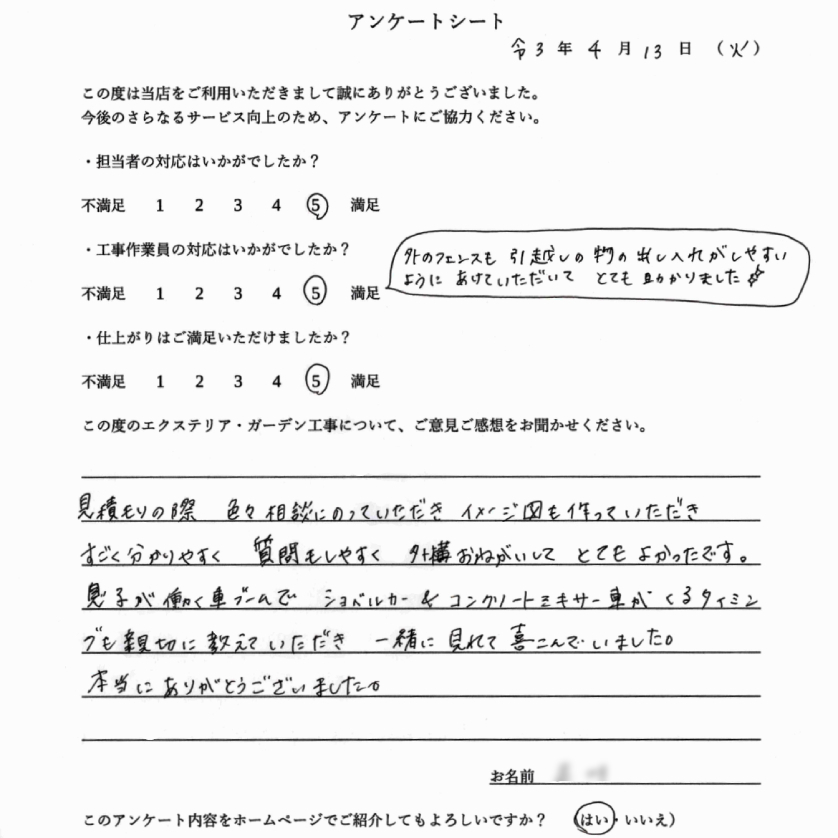 アンケートシート
令3年4月13日（火）
この度は当店をご利用いただきまして誠にありがとうございました。
今後のさらなるサービス向上のため、アンケートにご協力ください。
・担当者の対応はいかがでしたか？
不満足 1 2 3 4 5 満足
・工事作業員の対応はいかがでしたか？
外のフェンスも 引越しの物の出し入れがしやすい
ように あけていただいて とても 助かりました
不満足 1 2 3 4 5 満足
・仕上がりはご満足いただけましたか？
不満足 1 2 3 4 5 満足
この度のエクステリア・ガーデン工事について、ご意見ご感想をお聞かせください。
見積もりの際 色々相談にのっていただき イメージ図も作っていただき
すごく分かりやすく 質問もしやすく 外構おねがいして とてもよかったです。
息子が働く車ブームで ショベルカー & コンクリートミキサー車がくるタイミン
グも親切に教えていただき 一緒に見れて喜こんでいました。
本当にありがとうございました。
お名前
このアンケート内容をホームページでご紹介してもよろしいですか？ （はい・いいえ）